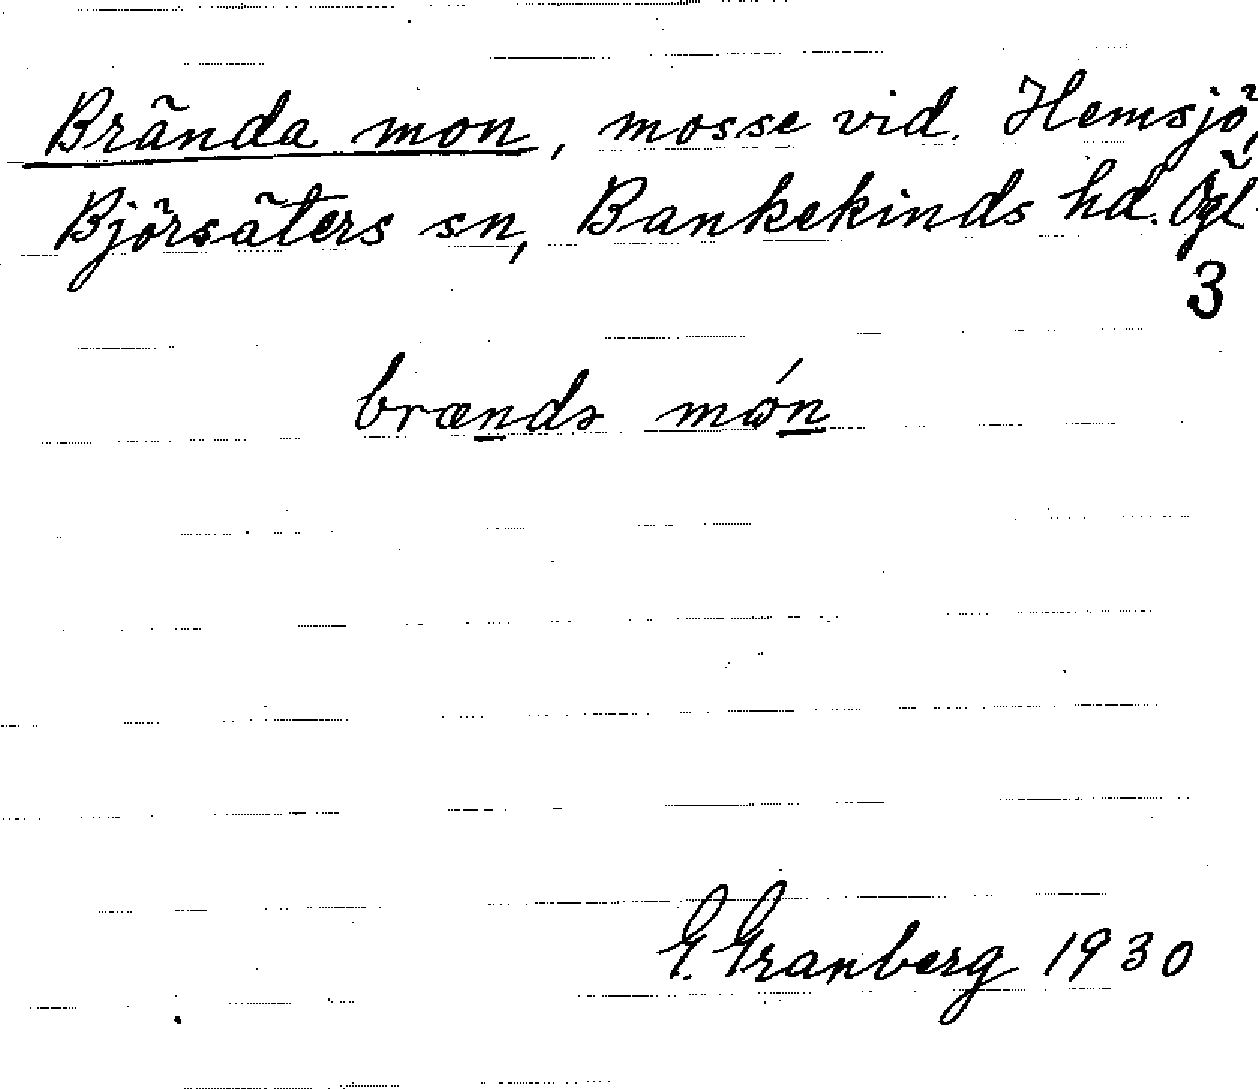 Brända mon, mosse vid Hemsjö,
Björsäters sn, Bankekinds hd. Ögl.
3
brænda món
G. Granberg 1930